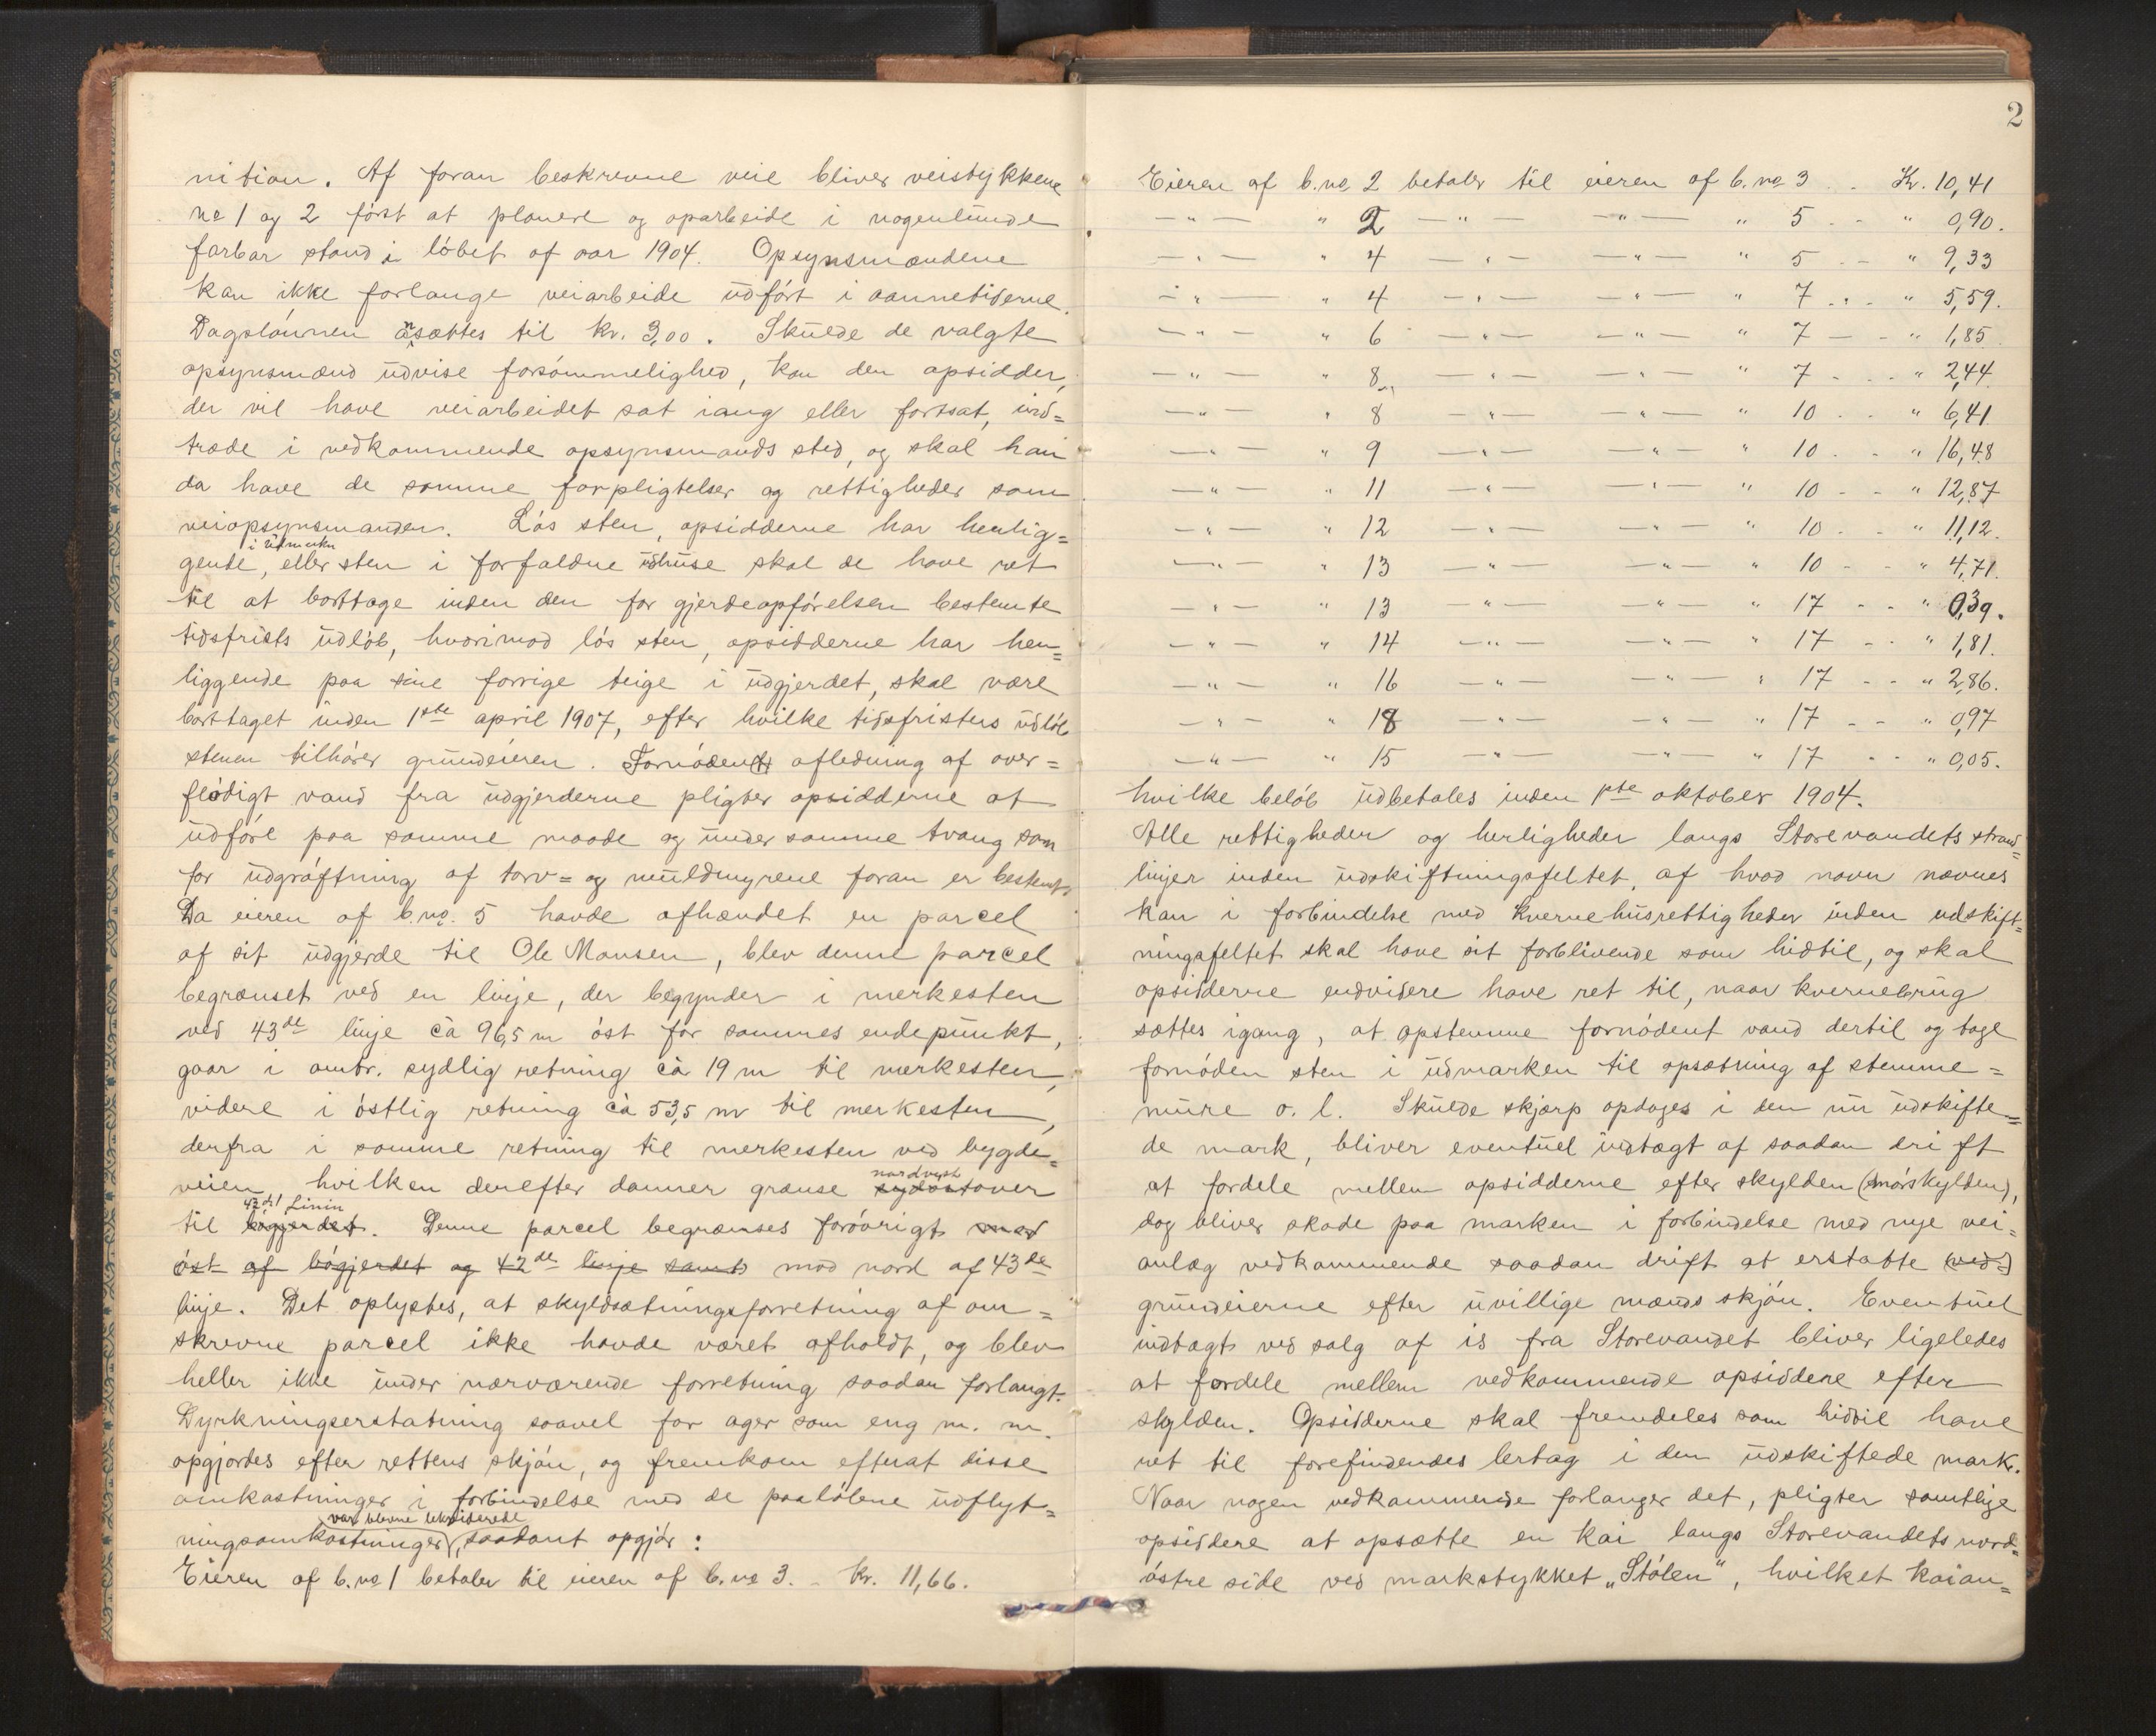 nition. Af foran beskrevne veie bliver veistykkene
no 1 og 2 først at planere og oparbeide i nogenlunde
farbar stand i løbet af aar 1904. Opsynsmændene
kan ikke forlange veiarbeide udført i aannetiderne.
Dagslønnen ansættes til kr. 3,00. Skulde de valgte
opsynsmænd udvise forsømmelighed, kan den opsidder,
der vil have veiarbeidet sat igang eller fortsat, ind=
træde i vedkommende opsynsmands sted, og skal han
da have de samme forpligtelser og rettigheder som
veiopsynsmanden. Løs sten, opsidderne har henlig=
i udmarken
gende, eller sten i forfaldne udhuse skal de have ret
til at borttage inden den for gjerdeopførelsen bestemte
tidsfrists udløb, hvorimod løs sten, opsidderne har hen=
liggende paa sine forrige teige i udgjerdet, skal være
borttaget inden 1ste april 1907, efter hvilke tidsfristens udløb
stenen tilhører grundeieren. Fornøden afledning af over=
flødigt vand fra udgjerderne pligter opsidderne at
udføre paa samme maade og under samme tvang som
for udgrøftning af torv= og muldmyrene foran er bestemt.
Da eieren af b.no. 5 havde afhændet en parcel
af sit udgjerde til Ole Monsen, blev denne parcel
begrænset ved en linje, der begynder i merkesten
ved 43de linje ca 96,5 m øst for sammes endepunkt,
gaar i omtr. sydlig retning ca 19 m til merkesten,
videre i østlig retning ca 53,5 m til merkesten,
derfra i samme retning til merkesten ved bygde=
nordvest
veien hvilken derefter danner grænse sydostover
42de Linie
til bøgjerdet. Denne parcel begrænses forøvrigt mod
øst af bøgjerdet og 42de linje samt mod nord af 43de
linje. Det oplystes, at skyldsætningsforretning af om=
skrevne parcel ikke havde været afholdt, og blev
heller ikke under nærværende forretning saadan forlangt.
Dyrkningserstatning saavel for ager som eng m. m.
opgjordes efter rettens skjøn, og fremkom efterat disse
omkostninger i forbindelse med de paaløbne udflyt=
var blevne likviderede
ningsomkostninger, saadant opgjør:
Eieren af b.no 1 betaler til eieren af b.no 3. - Kr. 11,66.
2
Eieren af b.no 2 betaler til eieren af b.no 3 . . Kr. 10,41
—"— " 2 —"— —"— " 5 - - " 0,90.
—"— " 4 —"— —"— " 5 - - " 9,33
—"— " 4 —"— —"— " 7 - - " 5,59.
—"— " 6 —"— —"— " 7 - - " 1,85
—"— " 8 —"— —"— " 7 - - " 2,44
—"— " 8 —"— —"— " 10 - - " 6,41
—"— " 9 —"— —"— " 10 - - " 16,48
—"— " 11 —"— —"— " 10 - - " 12,87
—"— " 12 —"— —"— " 10 - - " 11,12.
—"— " 13 —"— —"— " 10 - - " 4,71.
—"— " 13 —"— —"— " 17 - - " 0,39.
—"— " 14 —"— —"— " 17 - - " 1,81.
—"— " 16 —"— —"— " 17 - - " 2,86.
—"— " 18 —"— —"— " 17 - - " 0,97
—"— " 15 —"— —"— " 17 - - " 0,05.
hvilke beløb udbetales inden 1ste oktober 1904.
Alle rettigheder og herligheder langs Storevandets strand=
linjer inden udskiftningsfeltet, af hvad navn nævnes
kan i forbindelse med kvernehusrettigheder inden udskift=
ningsfeltet skal have sit forblivende som hidtil, og skal
opsidderne endvidere have ret til, naar kvernebrug
sættes igang, at opstemme fornødent vand dertil og tage
fornøden sten i udmarken til opsætning af stemme=
mure o. l. Skulde skjærp opdages i den nu udskifte=
de mark, bliver eventuel indtægt af saadan drift
at fordele mellem opsidderne efter skylden (smørskylden),
dog bliver skade paa marken i forbindelse med nye vei=
anlæg vedkommende saadan drift at erstatte (ved=)
grundeierne efter uvillige mænds skjøn. Eventuel
indtægt ved salg af is fra Storevandet bliver ligeledes
at fordele mellem vedkommende opsiddere efter
skylden. Opsidderne skal fremdeles som hidtil have
ret til forefindendes lertag i den udskiftede mark.
Naar nogen vedkommende forlanger det, pligter samtlige
opsiddere at opsætte en kai langs Storevandets nord=
østre side ved markstykket „Stølen", hvilket kaian=